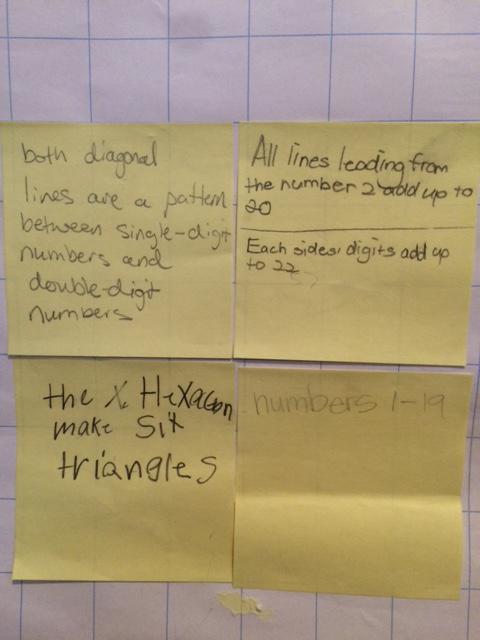 both diagonal
lines are a pattern
between single-digit
numbers and
double-digit
numbers
All lines leading from
the number 2 add up to
20
Each sides' digits add up
to 22
the X Hexagon
make six
triangles
numbers 1-19